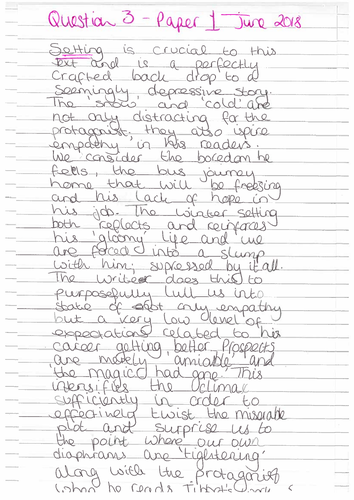 Question 3 - Paper 1 June 2018
Setting is crucial to this
text and is a perfectly
crafted back drop to a
seemingly depressive story.
The 'snow' and 'cold' are
not only distracting for the
protagonist, they also ispire
empathy in his readers.
We consider the boredom he
feels, the bus journey
home that will be freezing
and his lack of hope in
his job. The winter setting
both reflects and reinforces
his 'gloomy' life and we
are forced into a slump
with him; supressed by it all.
The writer does this to
purposefully lull us into
state of not only empathy
but a very low level of
expectations related to his
career getting better. Prospects
are merely 'amiable' and
'the magic had gone'. This
intensifies the climax
sufficiently in order to
effectively twist the miserable
plot and surprise us to
the point where our own
diaphrams are 'tightening'
along with the protagonist
when he reads Tibbet's work